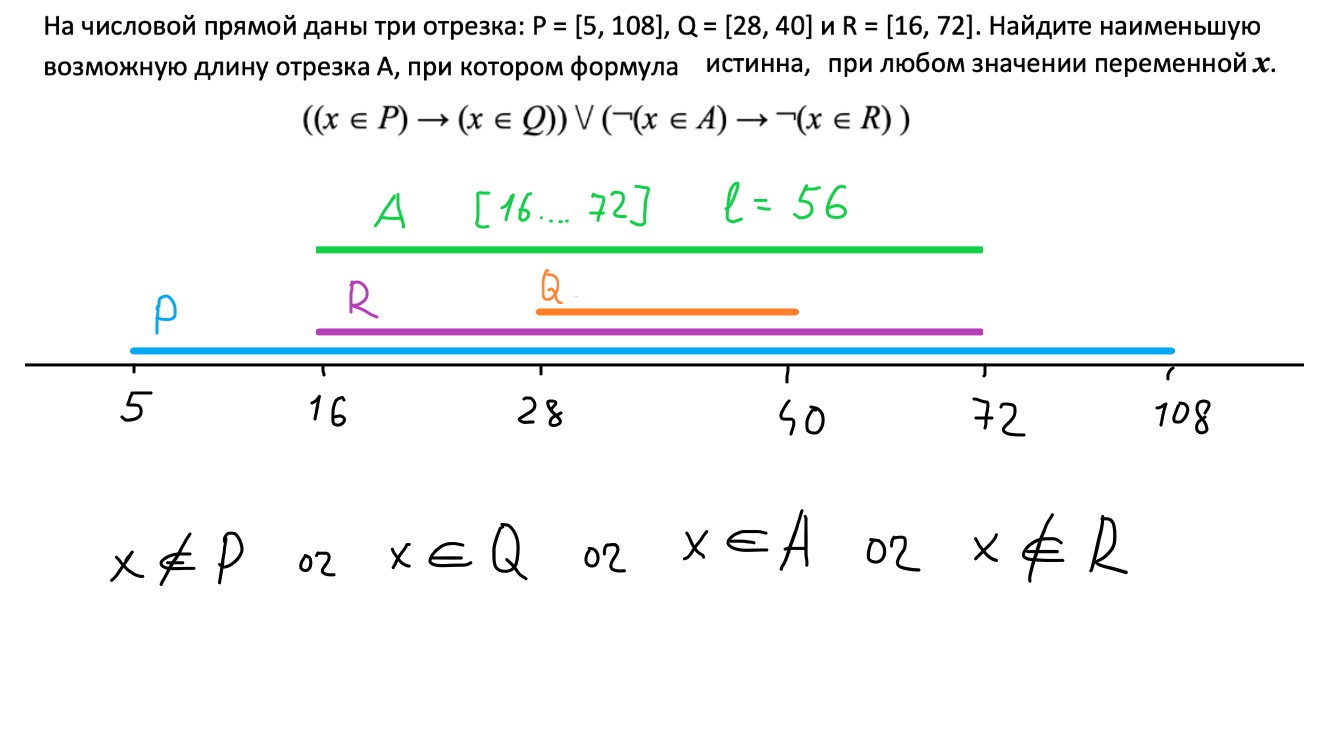 На числовой прямой даны три отрезка: P = [5, 108], Q = [28, 40] и R = [16, 72]. Найдите наименьшую
возможную длину отрезка A, при котором формула истинна, при любом значении переменной x.
((x ∈ P) → (x ∈ Q)) ∨ (¬(x ∈ A) → ¬(x ∈ R) )
A [16.... 72] l = 56
Q
R
P
5 16 28 40 72 108
x ∉ P or x ∈ Q or x ∈ A or x ∉ R